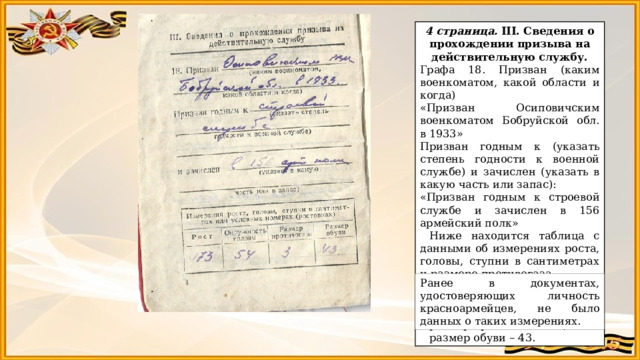 III. Сведения о прохождении призыва на
действительную службу
18. Призван Осиповичским РВК
(каким военкоматом,
Бобруйской обл. в 1933.
какой области и когда)
Призван годным к строевой
(указать степень
службе
годности к военной службе)
и зачислен в 156 арт полк
(указать в какую
часть или в запас)
Измерения роста, головы, ступни в сантимет-
рах или условных номерах (ростовках)
Рост
Окружность головы
Размер противогаза
Размер обуви
173 54 3 43
4 страница. III. Сведения о
прохождении призыва на
действительную службу.
Графа 18. Призван (каким
военкоматом, какой области и
когда)
«Призван Осиповичским
военкоматом Бобруйской обл.
в 1933»
Призван годным к (указать
степень годности к военной
службе) и зачислен (указать в
какую часть или запас):
«Призван годным к строевой
службе и зачислен в 156
армейский полк»
Ниже находится таблица с
данными об измерениях роста,
головы, ступни в сантиметрах
Ранее в документах,
удостоверяющих личность
красноармейцев, не было
данных о таких измерениях.
размер обуви – 43.